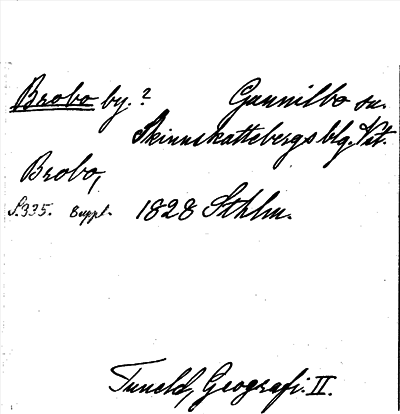 Brobo by.? Gunnilbo sn.
Skinnskattebergs blg. Vstl.
Brobo,
S.335. Suppl. 1828 Sthlm.
Tuneld, Geografi. II.